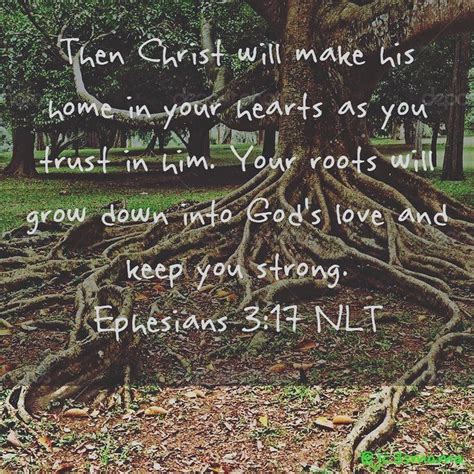 Then Christ will make his
home in your hearts as you
trust in him. Your roots will
grow down into God's love and
keep you strong.
Ephesians 3:17 NLT